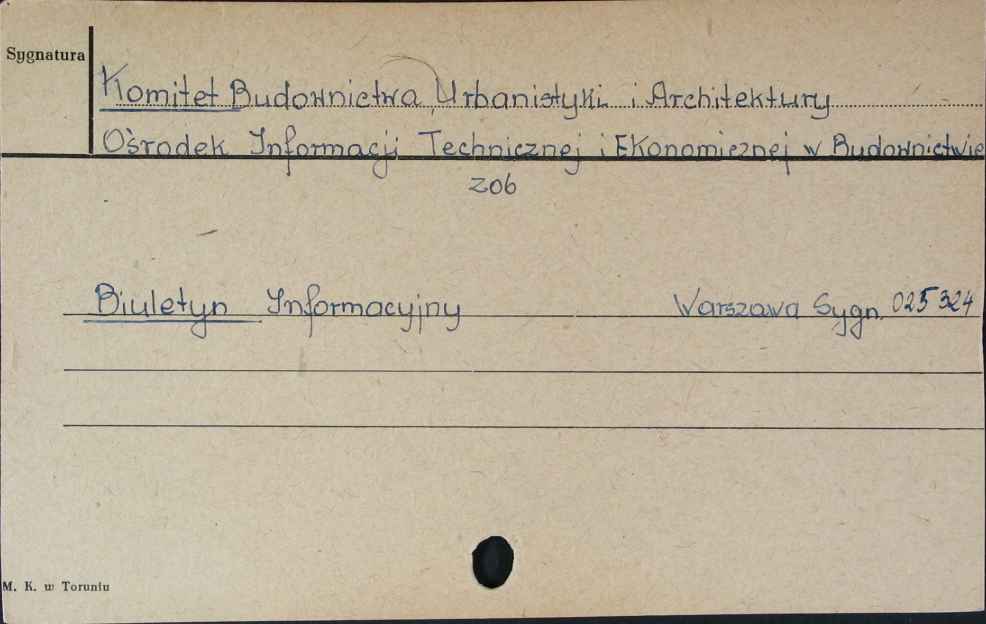 Sygnatura
Komitet Budownictwa Urbanistyki i Architektury
Ośrodek Informacji Technicznej i Ekonomicznej w Budownictwie
zob
Biuletyn Informacyjny Warszawa Sygn. 025324
M. K. w Toruniu